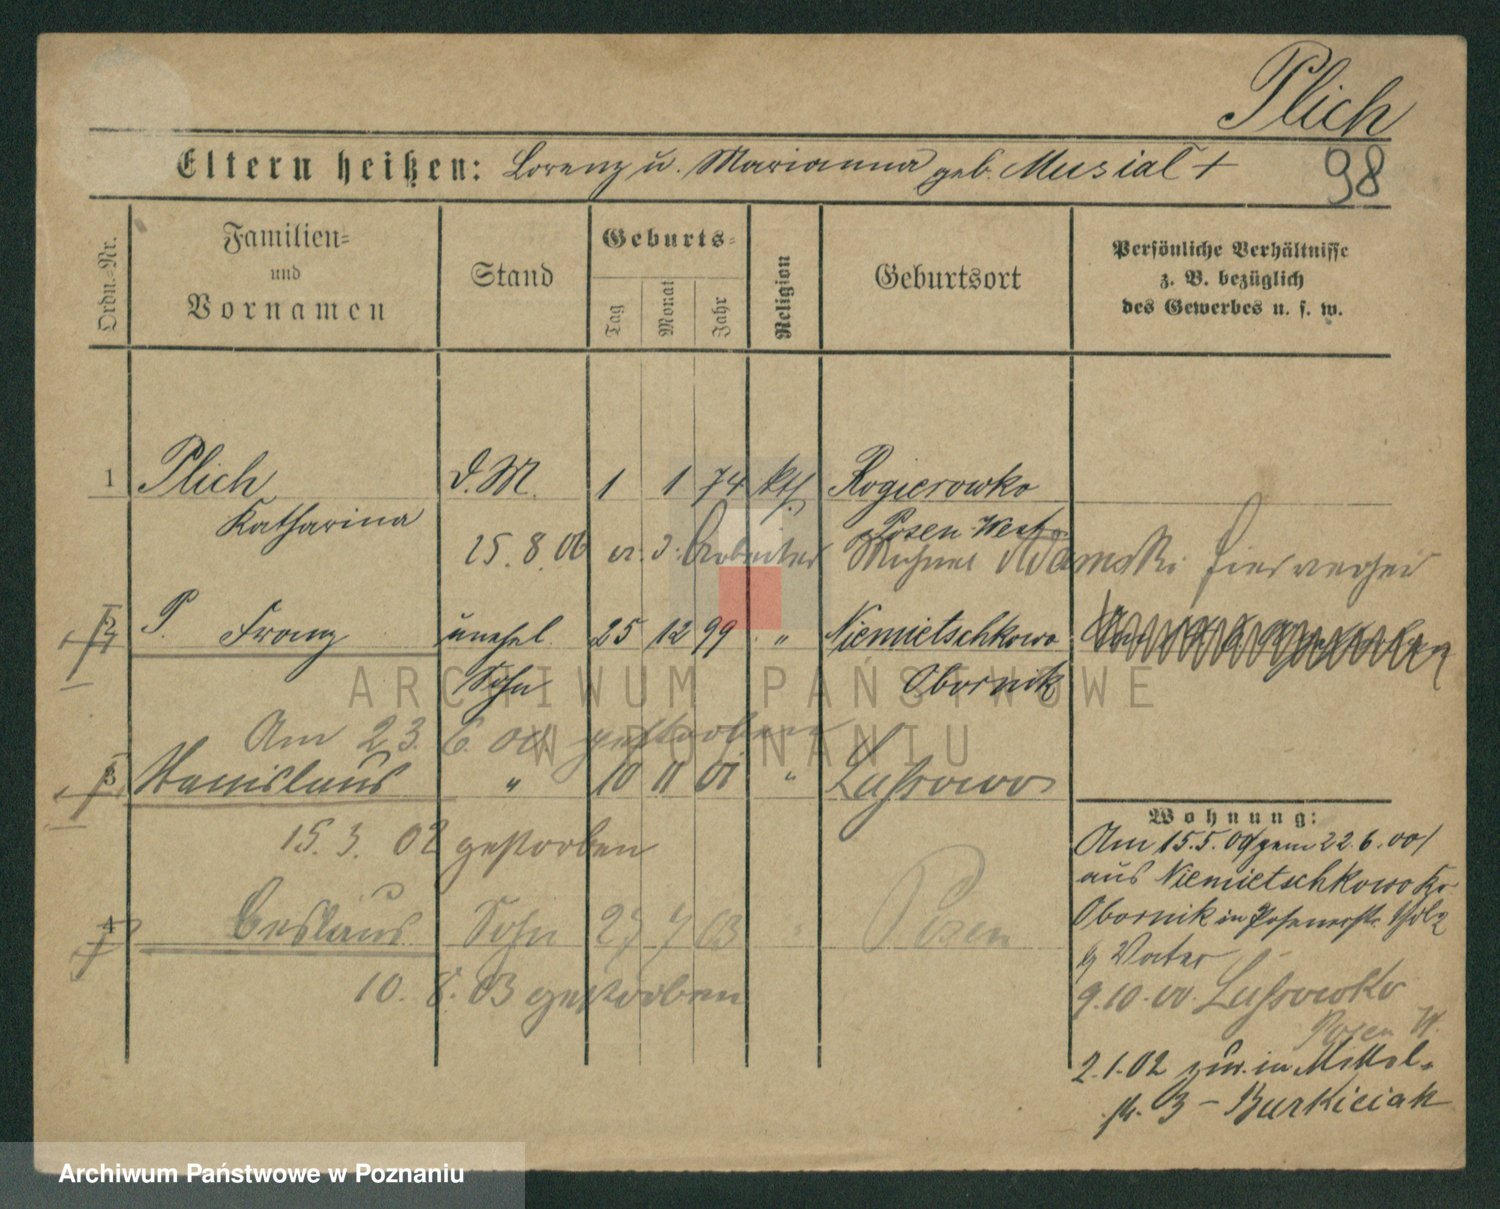 Plich
98
Eltern heißen: Lorenz u. Marianna geb. Musial +
Ordn.-Nr.
Familien-
und
Vornamen
Stand
Geburts-
Tag
Monat
Jahr
Religion
Geburtsort
Persönliche Verhältnisse
z. B. bezüglich
des Gewerbes u. s. w.
1 Plich D.M. 1 1 74 kth. Rogierowko
Katharina Posen West
15.8.06 Arbeiter Adamski hier
2 P. Franz unehel. 25 12 99 " Niemietschkowo
Sohn Obornik
Am 23. 6. 00 gestorben
3 Stanislaus " 10 11 01 " Lussowo
15. 3. 02 gestorben
4 Ceslaus Sohn 27 7 03 " Posen
10. 8. 03 gestorben
Wohnung:
Am 15.5.00/gem 22.6.00/
aus Niemietschkowo Kr.
Obornik in Posenerstr.
b/ Vater
9.10.00. Lussowko
Posen W.
2.1.02 zur. in Mittel-
str. 3 – Burkiciak
ARCHIWUM PAŃSTWOWE
W POZNANIU
Archiwum Państwowe w Poznaniu